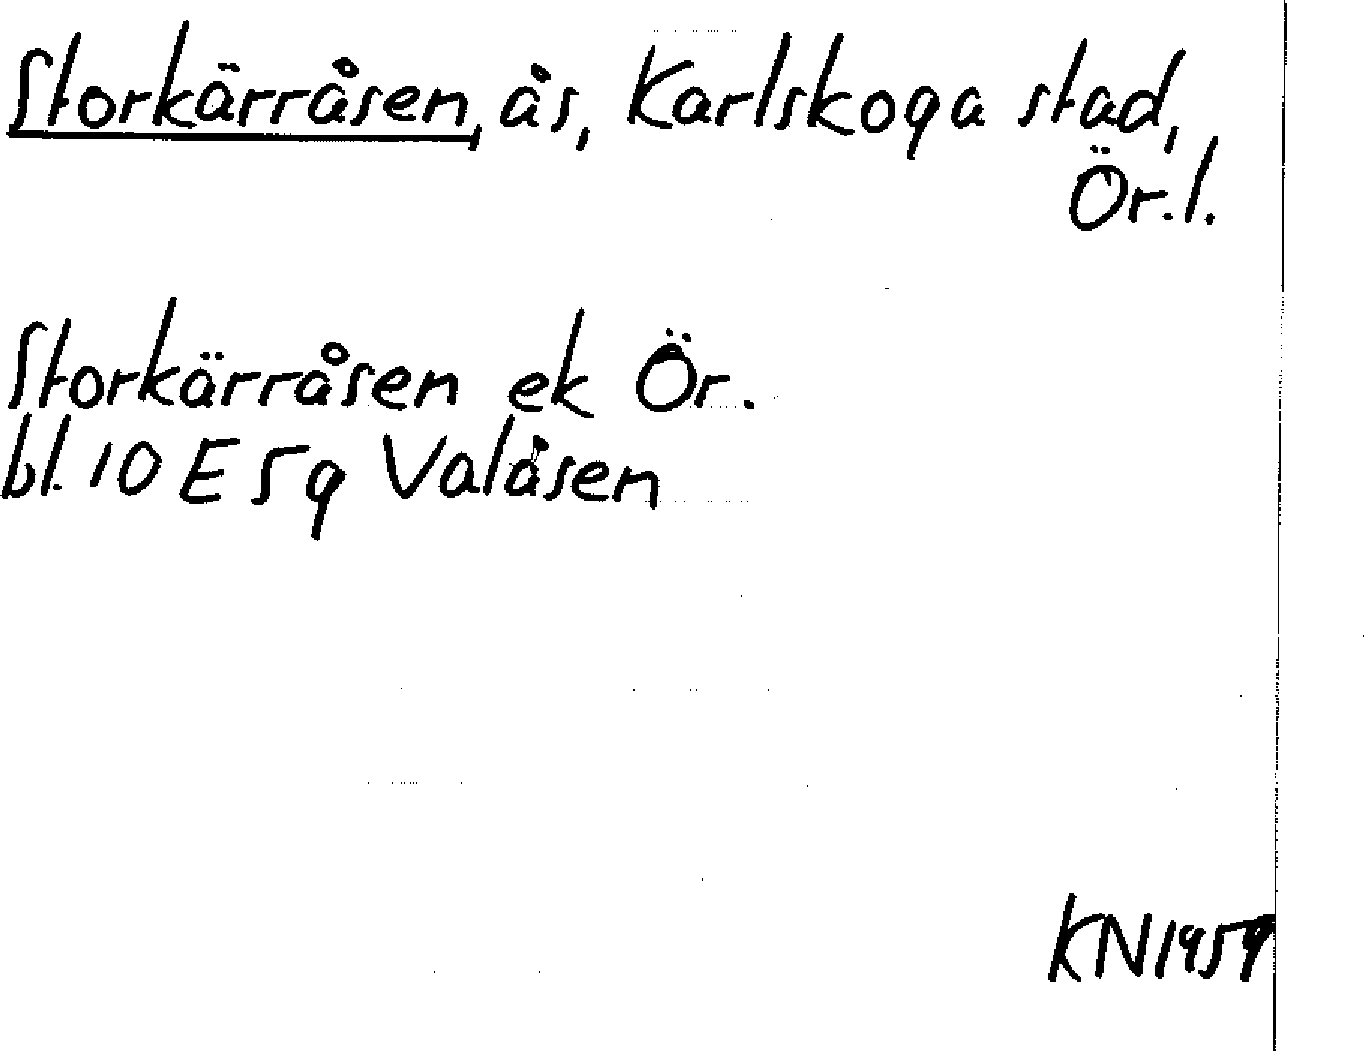 Storkärråsen, ås, Karlskoga stad,
Ör. l.
Storkärråsen ek Ör.
bl. 10 E 5g Valåsen
KN 1959